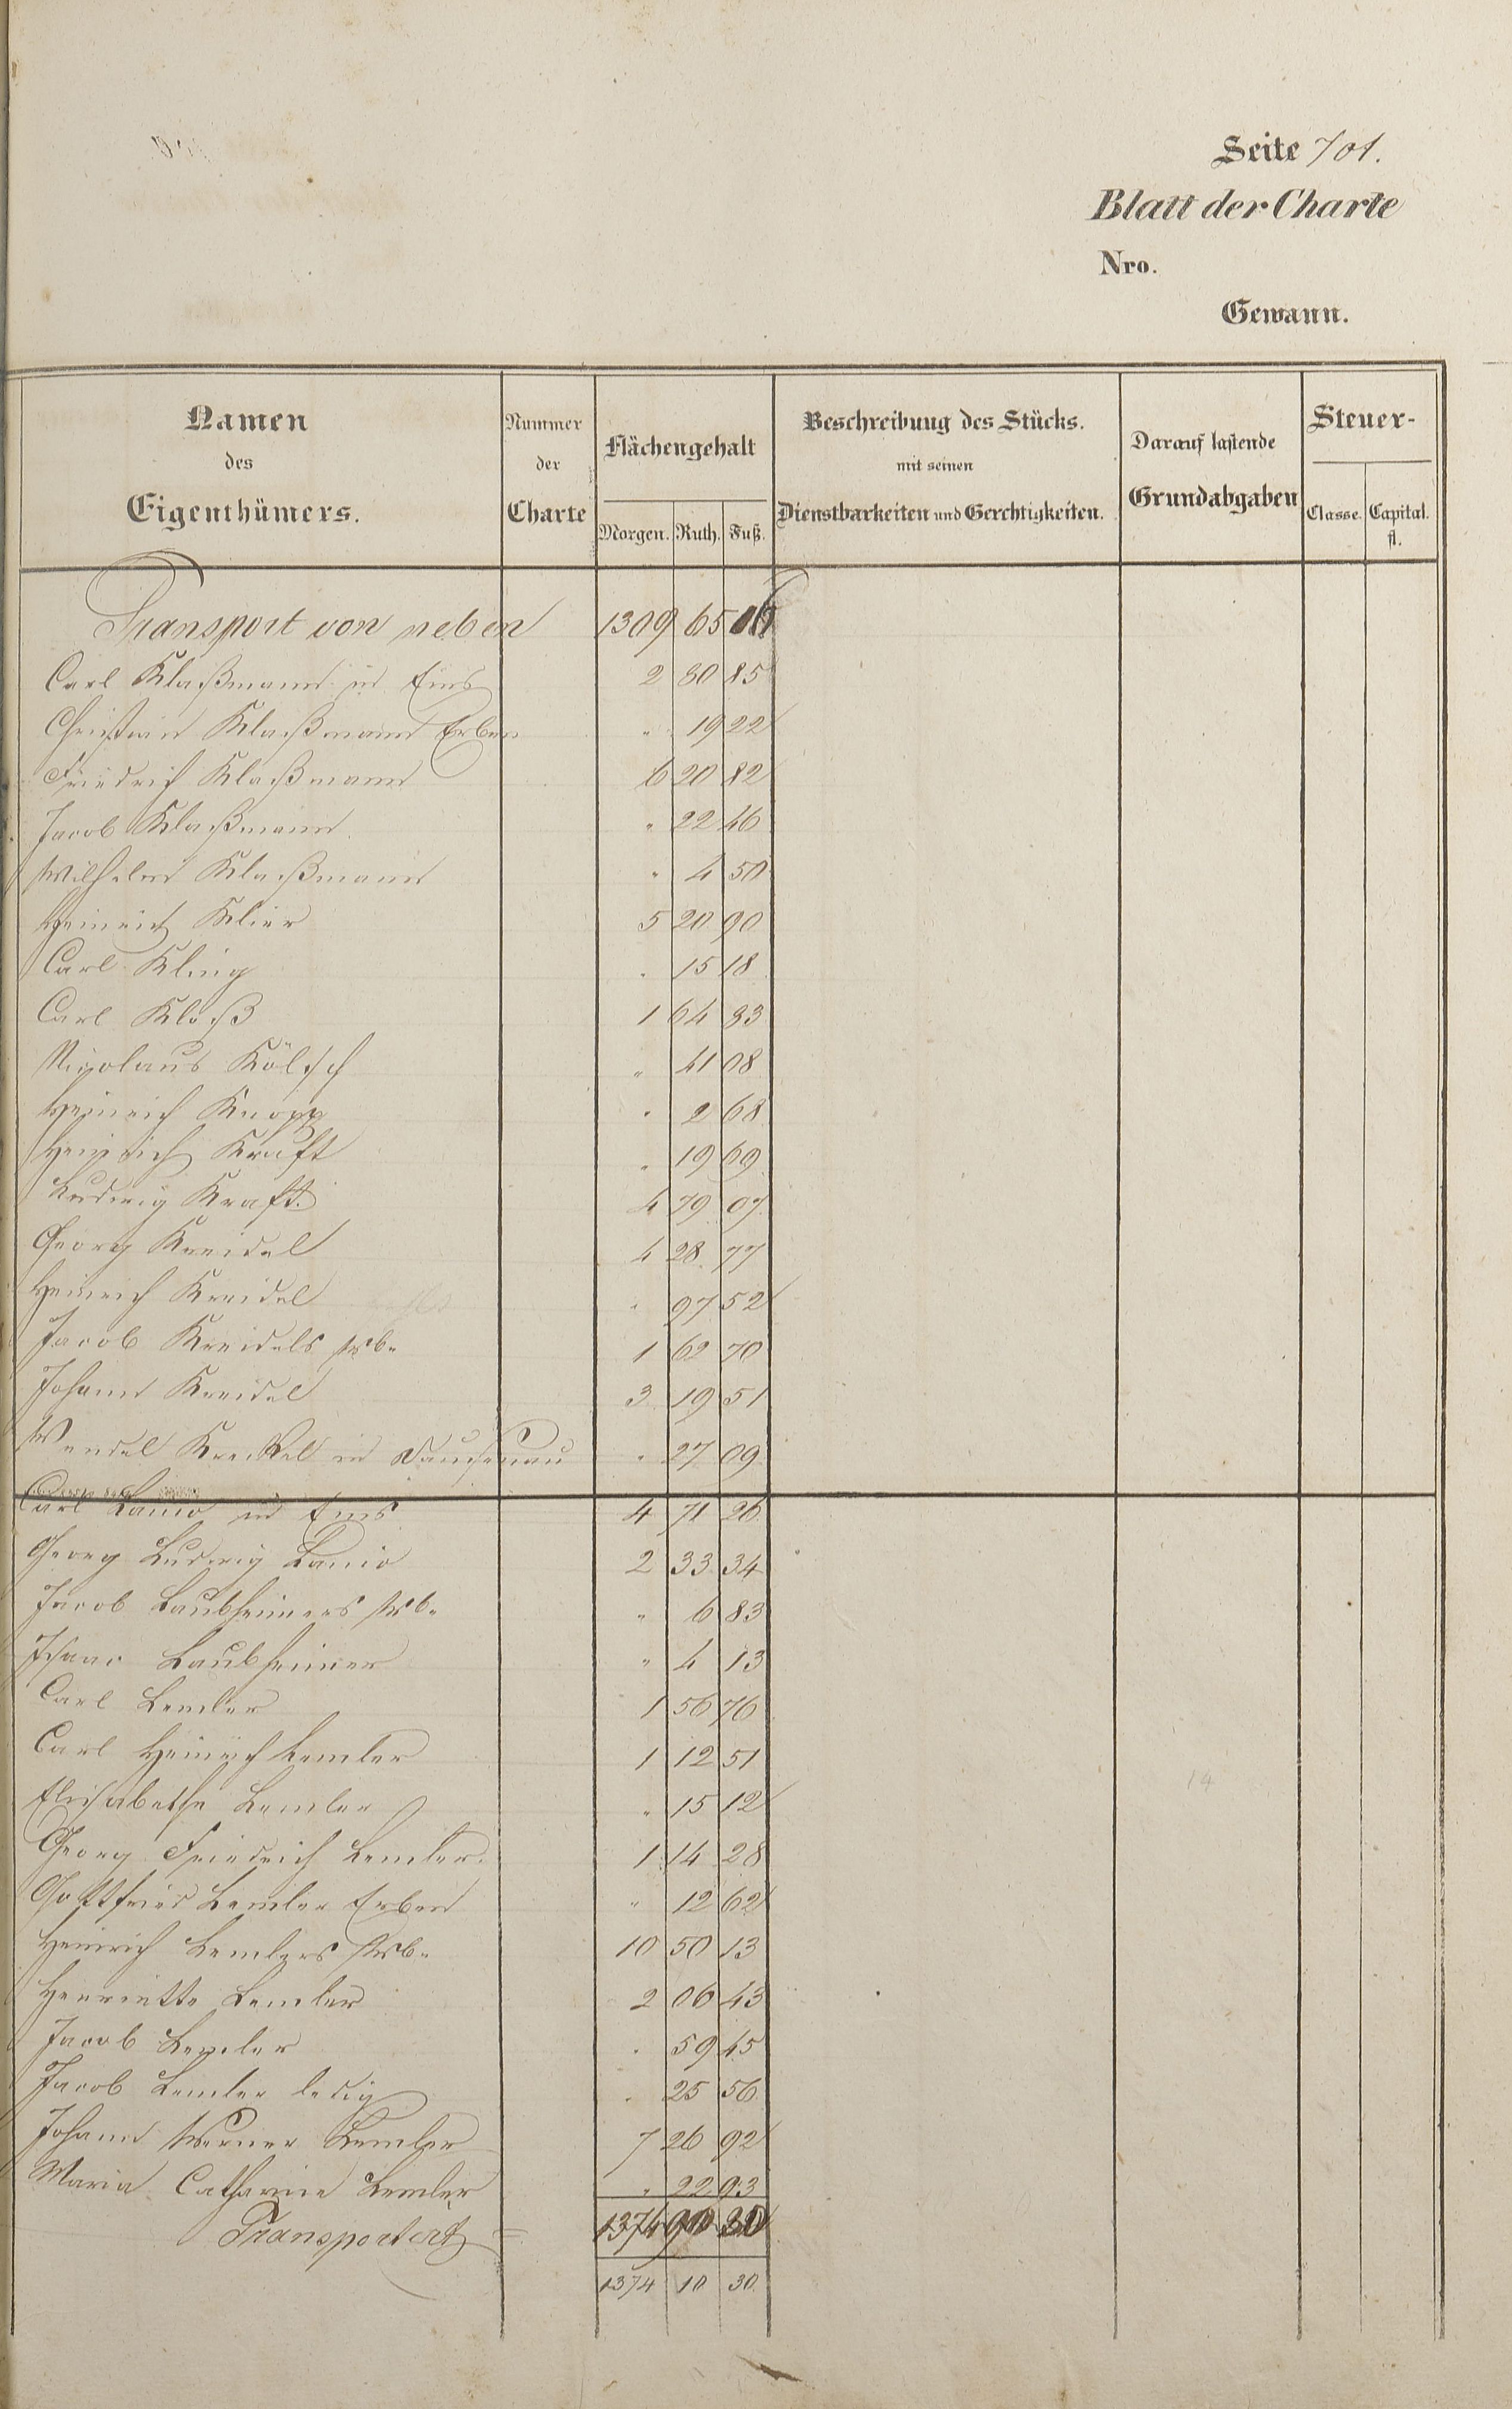 Seite 701.
Blatt der Charte
Nro.
Gewann.
Namen des Eigenthümers.
Nummer der Charte
Flächengehalt
Morgen. Ruth. Fuß.
Beschreibung des Stücks. mit seinen Dienstbarkeiten und Gerechtigkeiten.
Darauf lastende Grundabgaben
Steuer-
Classe. Capital. fl.
Transport von neben 1309 65 06
Carl Klaßmann in Ems 2 80 85
Christian Klaßmann Erben " 19 22
Friedrich Klaßmann 6 20 82
Jacob Klaßmann " 22 46
Wilhelm Klaßmann " 4 50
Heinrich Klier 5 20 90
Carl Kling " 15 18
Carl Kloß 1 64 83
Nicolaus Kölsch " 41 08
Heinrich Knopp " 2 68
Heinrich Kraft " 19 69
Ludwig Kraft. 4 79 07
Georg Kreidel 4 28 77
Heinrich Kreidel " 97 52
Jacob Kreidels Wb. 1 62 70
Johann Kreidel 3 19 51
Wendel Kreckel in Dausenau " 27 09
Carl Lanio in Ems 4 71 26
Georg Ludwig Lanio 2 33 34
Jacob Laubheimers Wb. " 6 83
Isaac Laubheimer " 4 13
Carl Lemler 1 56 76
Carl Heinrich Lemler 1 12 51
Elisabethe Lemler " 15 12
Georg Friedrich Lemler. 1 14 28
Gottfried Lemler Erben " 12 62
Heinrich Lemlers Wb. 10 50 13
Henriette Lemler 2 06 43
Jacob Lemler " 59 45
Jacob Lemler ledig " 25 56
Johann Werner Lemler 7 26 92
Maria Catharine Lemler " 22 93
Transportert = 1374 90 20
1374 10 30
14